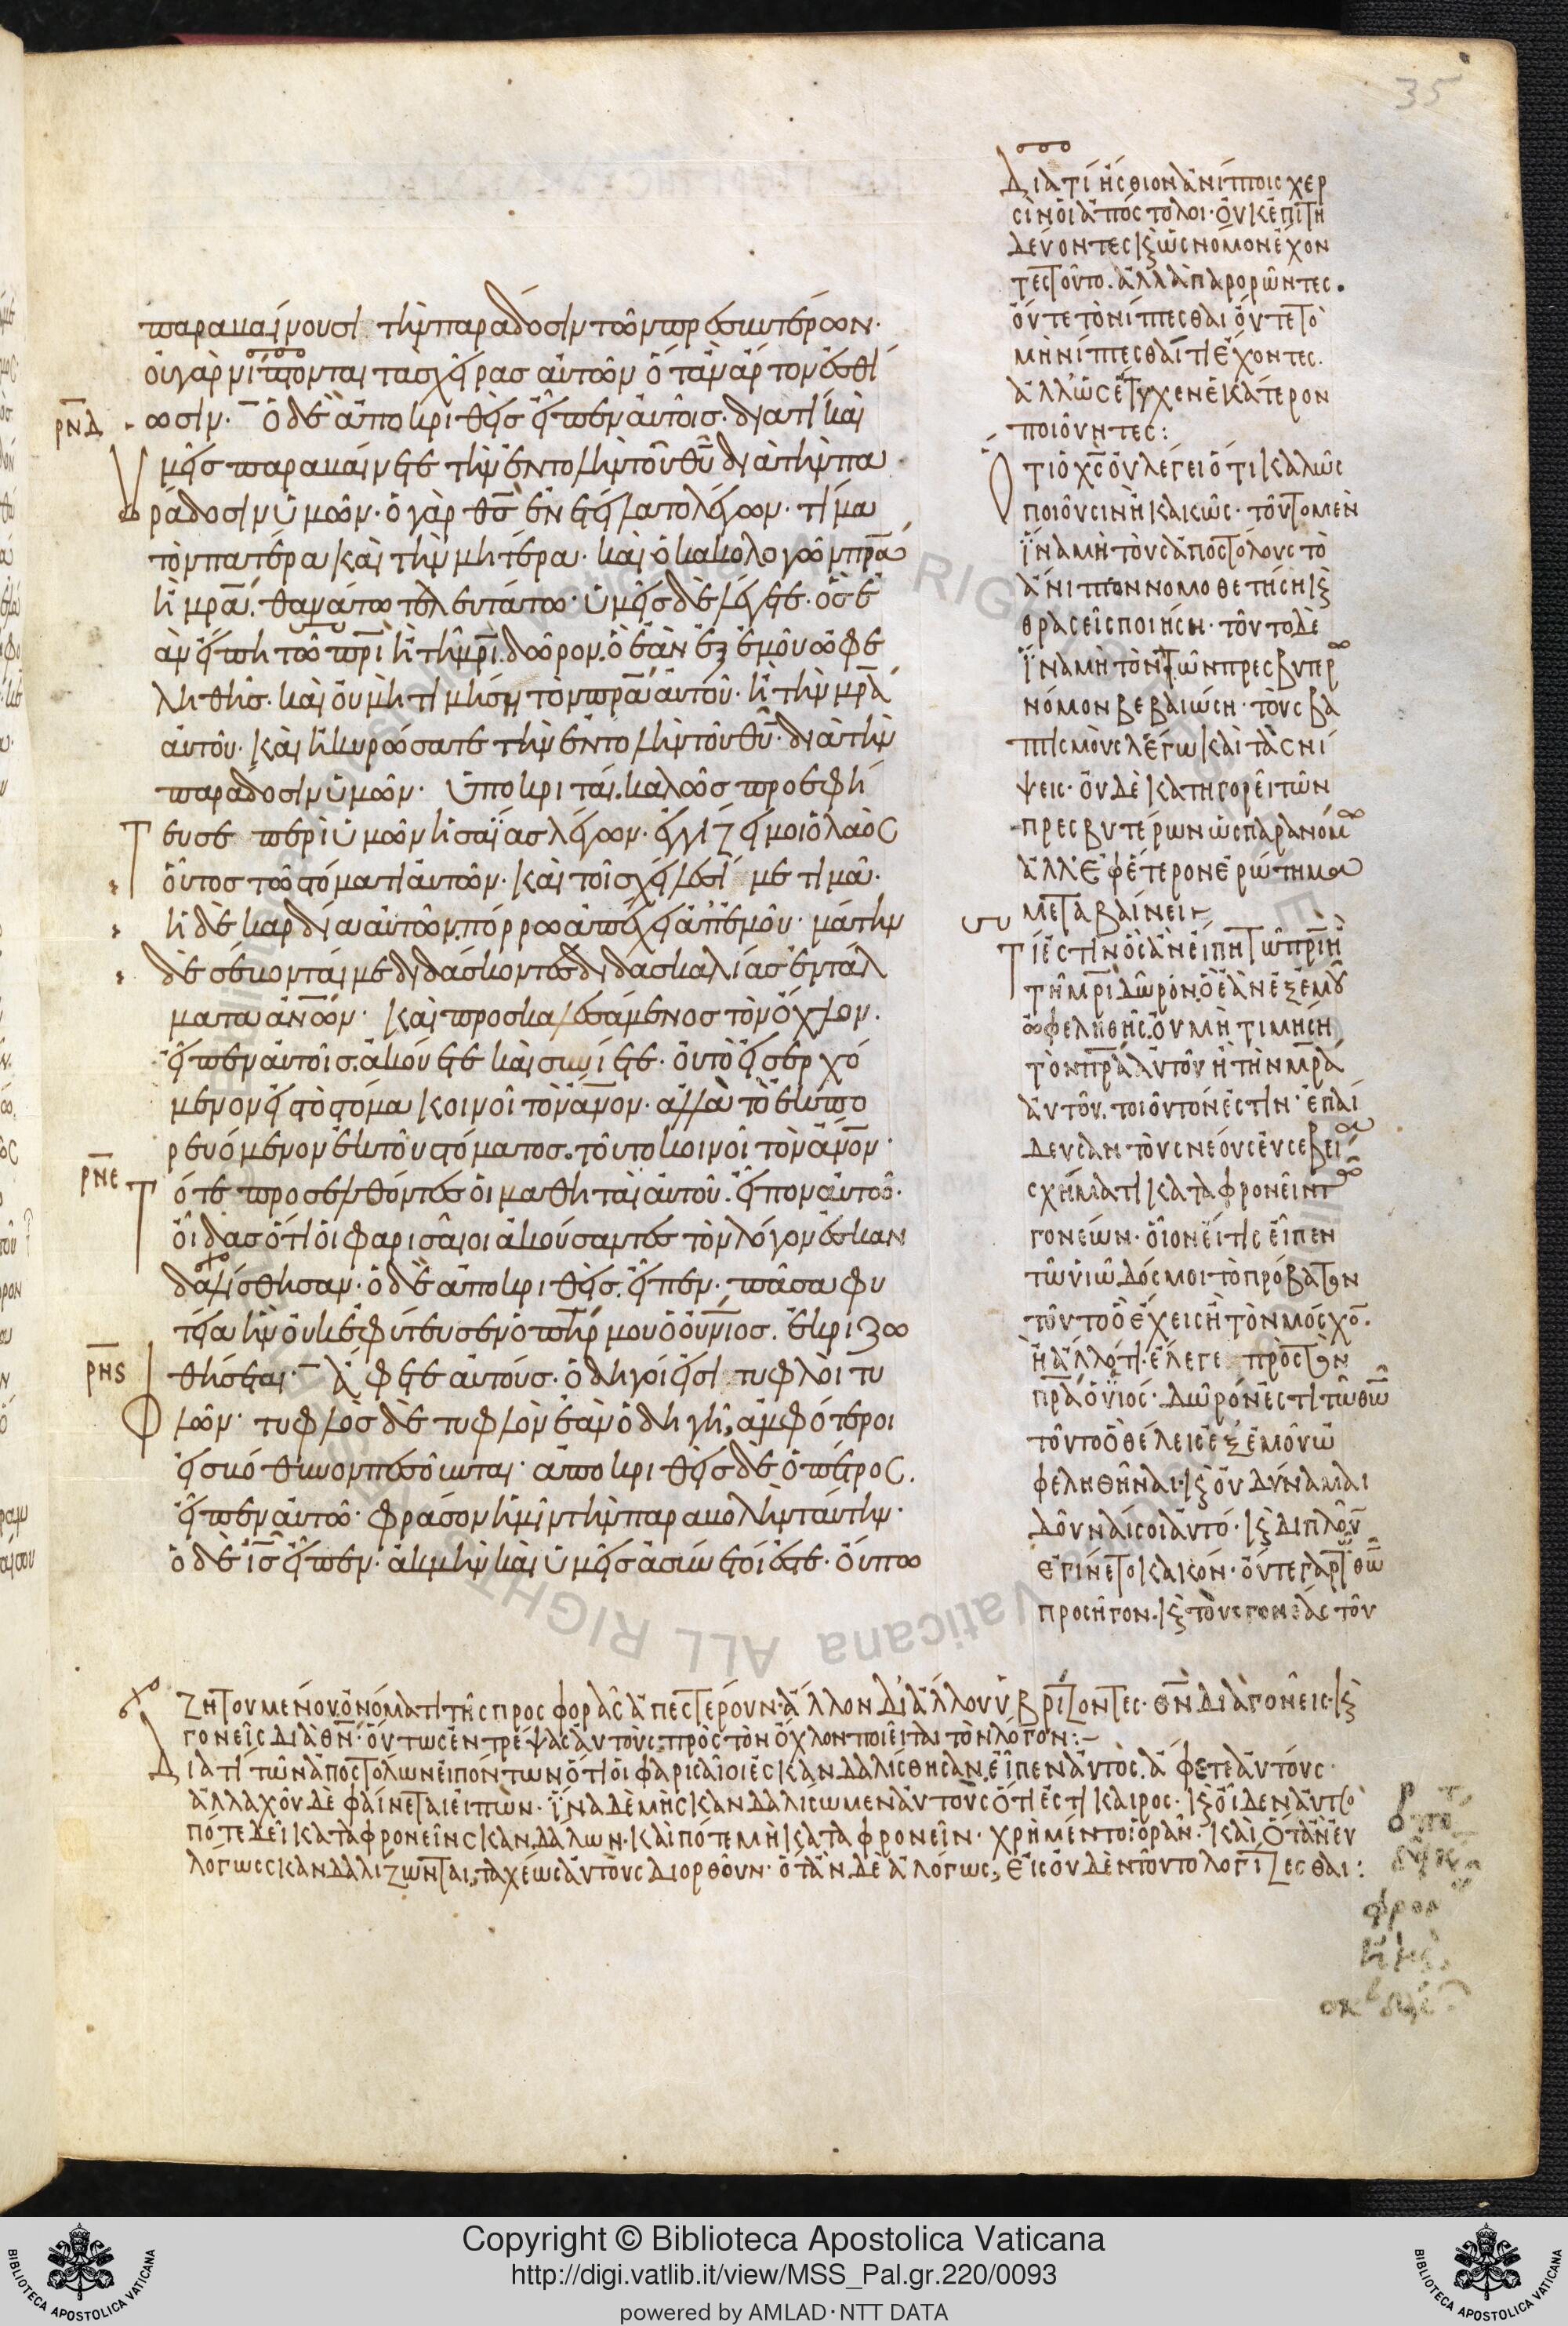 35
παραβαίνουσι τὴν παράδοσιν τῶν πρεσβυτέρων·
οὐ γὰρ νίπτονται τὰς χεῖρας αὐτῶν ὅταν ἄρτον ἐσθί
ρνδ ωσιν· Ὁ δὲ ἀποκριθεὶς εἶπεν αὐτοῖς· διατί καὶ
ὑμεῖς παραβαίνετε τὴν ἐντολὴν τοῦ θῡ διὰ τὴν πα
ράδοσιν ὑμῶν· ὁ γὰρ θς̄ ἐνετείλατο λέγων· τίμα
τὸν πατέρα καὶ τὴν μητέρα· καὶ ὁ κακολογῶν πρ̄α
ἢ μρ̄α· θανάτω τελευτάτω· ὑμεῖς δὲ λέγετε· ὃς ἐ
ὰν εἴπη τῶ πρ̄ι ἢ τῆ μρ̄ι· δῶρον ὃ ἐὰν ἐξ ἐμοῦ ὠφε
ληθῆς· καὶ οὐ μὴ τιμήση τὸν πρ̄α αὐτοῦ· ἢ τὴν μρ̄α
αὐτοῦ· καὶ ἠκυρώσατε τὴν ἐντολὴν τοῦ θῡ· διὰ τὴν
παράδοσιν ὑμῶν· ὑποκριταί· καλῶς προεφή
τευσε περὶ ὑμῶν ἡσαΐας λέγων· ἐγγίζει μοι ὁ λαὸς
οὗτος τῶ στόματι αὐτῶν· καὶ τοῖς χείλεσί με τιμᾶ·
ἡ δὲ καρδία αὐτῶν πόρρω ἀπέχει ἀπ' ἐμοῦ· μάτην
δὲ σέβονταί με διδάσκοντες διδασκαλίας ἐντάλ
ματα ἀν̄ων· καὶ προσκαλεσάμενος τὸν ὄχλον·
εἶπεν αὐτοῖς· ἀκούετε καὶ συνίετε· οὐ τὸ εἰσερχό
μενον εἰς τὸ στόμα κοινοῖ τὸν ἄν̄ον· ἀλλὰ τὸ ἐκπο
ρευόμενον ἐκ τοῦ στόματος· τοῦτο κοινοῖ τὸν ἄν̄ον·
ρνε τότε προσελθόντες οἱ μαθηταὶ αὐτοῦ· εἶπον αὐτῶ·
οἶδας ὅτι οἱ φαρισαῖοι ἀκούσαντες τὸν λόγον ἐσκαν
δαλίσθησαν· ὁ δὲ ἀποκριθεὶς· εἶπεν· πᾶσα φυ
τεία ἣν οὐκ ἐφύτευσεν ὁ πη̄ρ μου ὁ οὐν̄ιος· ἐκριζω
ρνς θήσεται· ἄφετε αὐτούς· ὁδηγοί εἰσι τυφλοὶ τυ
φλῶν· τυφλὸς δὲ τυφλὸν ἐὰν ὁδηγῆ, ἀμφότεροι
εἰς βόθυνον πεσοῦνται· ἀποκριθεὶς δὲ ὁ πέτρος·
εἶπεν αὐτῶ· φράσον ἡμῖν τὴν παραβολὴν ταύτην·
ὁ δὲ ις̄ εἶπεν· ἀκμὴν καὶ ὑμεῖς ἀσύνετοί ἐστε· οὔπω
Διατί ἤσθιον ἀνίπποις χερ
σὶν οἱ ἀπόστολοι· οὐκ ἐπιτη
δεύοντες κ ὡς νόμον ἔχον
τες τοῦτο· ἀλλὰ παρορῶντες·
οὔτε τὸ νίπτεσθαι οὔτε τὸ
μὴ νίπτεσθαί τι ἔχοντες·
ἀλλ' ὡς ἔτυχεν ἑκάτερον
ποιοῦντες:
Ὅτι ὁ χς̄ οὐ λέγει ὅτι καλῶς
ποιοῦσιν ἢ κακῶς· τοῦτο μὲν
ἵνα μὴ τοὺς ἀποστόλους τὸ
ἄνιπτον νομοθετήση κ
θρασεῖς ποιήση· τοῦτο δὲ
ἵνα μὴ τὸν τῶν πρεσβυτερ
νόμον βεβαιώση· τοὺς βα
πτισμοὺς λέγω καὶ τὰς νί
ψεις· οὐδὲ κατηγορεῖ τῶν
πρεσβυτέρων ὡς παρανόμ
ἀλλ' ἐφ' ἕτερον ἐρώτημα
μεταβαίνει
Τί ἐστιν ὃς ἂν εἴπη τῶ πρ̄ι ἢ
τῆ μρ̄ι δῶρον ὃ ἐὰν ἐξ ἐμοῦ
ὠφεληθῆς· οὐ μὴ τιμήση
τὸν πρ̄α αὐτοῦ ἢ τὴν μρ̄α
αὐτοῦ· τοιοῦτον ἐστιν· ἐπαί
δευσαν τοὺς νέους εὐσεβεί
σχήματι καταφρονεῖν τ
γονέων· οἷον εἴ τις εἶπεν
τῶ υἱῶ δός μοι τὸ πρόβατον
τοῦτο ὃ ἔχεις ἢ τὸν μόσχο̄·
ἢ ἄλλο τι· ἔλεγε πρὸς τὸν
πρ̄α ὁ υἱός· δῶρόν ἐστι τῶ θω̄
τοῦτο ὃ θέλεις ἐξ ἐμοῦ ὠ
φεληθῆναι· κ οὐ δύναμαι
δοῦναί σοι αὐτό· κ διπλοῦν
ἐγίνετο κακόν· οὔτε γὰρ τ θω̄
προσῆγον· κ τοὺς γονέας τοῦ
Ζητουμένου ὀνόματι τῆς προσφορᾶς ἀπεστέρουν· ἄλλον δι' ἄλλου ὑβρίζοντες· θν̄ διὰ γονεῖς· κ
γονεῖς διὰ θν̄· οὕτως ἐντρέψας αὐτοὺς· πρὸς τὸν ὄχλον ποιεῖται τὸν λόγον:–
Διατί τῶν ἀποστόλων εἰπόντων ὅτι οἱ φαρισαῖοι ἐσκανδαλίσθησαν, εἶπεν αὐτός· ἄφετε αὐτούς·
ἀλλαχοῦ δὲ φαίνεται εἰπὼν· ἵνα δὲ μὴ σκανδαλίσωμεν αὐτούς ὅτι ἐστι καιρος· κ οἶδεν αὐτὸ
πότε δεῖ καταφρονεῖν σκανδάλων· καὶ πότε μὴ καταφρονεῖν· χρὴ μέντοι ὁρᾶν· καὶ ὅταν εὐ
λόγως σκανδαλίζωνται, ταχέως αὐτοὺς διορθοῦν· ὅταν δὲ ἀλόγως, εἰς οὐδὲν τοῦτο λογίζεσθαι:
Copyright © Biblioteca Apostolica Vaticana
http://digi.vatlib.it/view/MSS_Pal.gr.220/0093
powered by AMLAD·NTT DATA
BIBLIOTECA APOSTOLICA VATICANA
BIBLIOTECA APOSTOLICA VATICANA